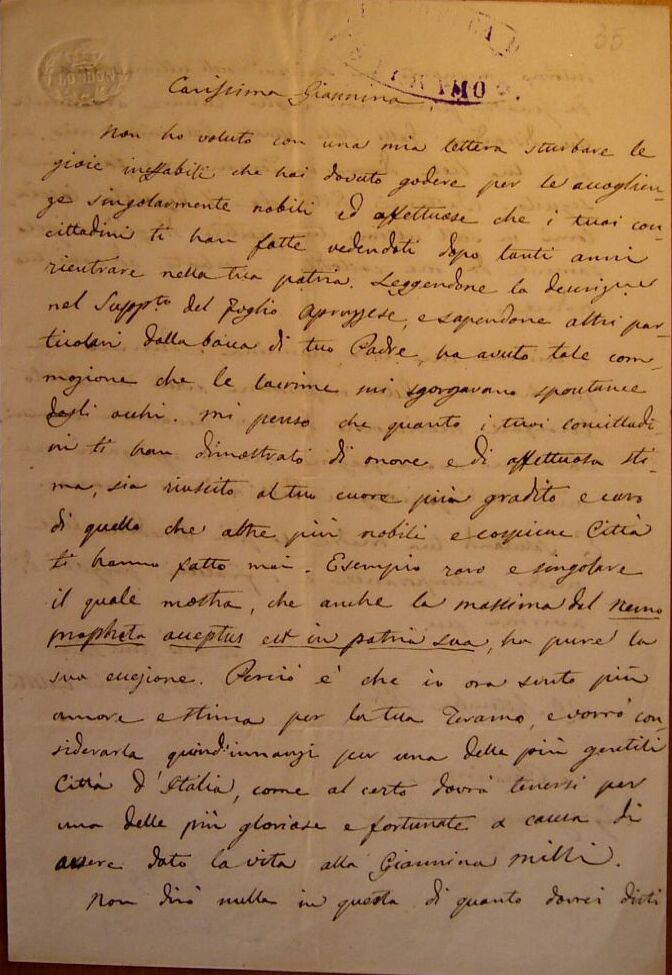 35
TERAMO.
Carissima Giannina,
Non ho voluto con una mia lettera sturbare le
gioie ineffabili che hai dovuto godere per le accoglien-
ze singolarmente nobili ed affettuose che i tuoi con-
cittadini ti han fatte vedendoti dopo tanti anni
rientrare nella tua patria. Leggendone la descrizne
nel Supplto del foglio Apruzzese, e sapendone altri par-
ticolari dalla bocca di tuo Padre, ho avuto tale com-
mozione che le lacrime mi sgorgavano spontanee
dagli occhi. Mi penso che quanto i tuoi concittadi-
ni ti han dimostrato di onore e di affettuosa sti-
ma, sia riuscito al tuo cuore più gradito e caro
di quello che altre più nobili e cospicue Città
ti hanno fatto mai. Esempio raro e singolare
il quale mostra, che anche la massima del Nemo
propheta acceptus est in patria sua, ha pure la
sua eccezione. Perciò è che io ora sento più
amore e stima per la tua Teramo, e vorrò con-
siderarla quind'innanzi per una delle più gentili
Città d'Italia, come al certo dovrà tenersi per
una delle più gloriose e fortunate a causa di
avere dato la vita alla Giannina Milli.
Non dirò nulla in questa di quanto dovrei dirti